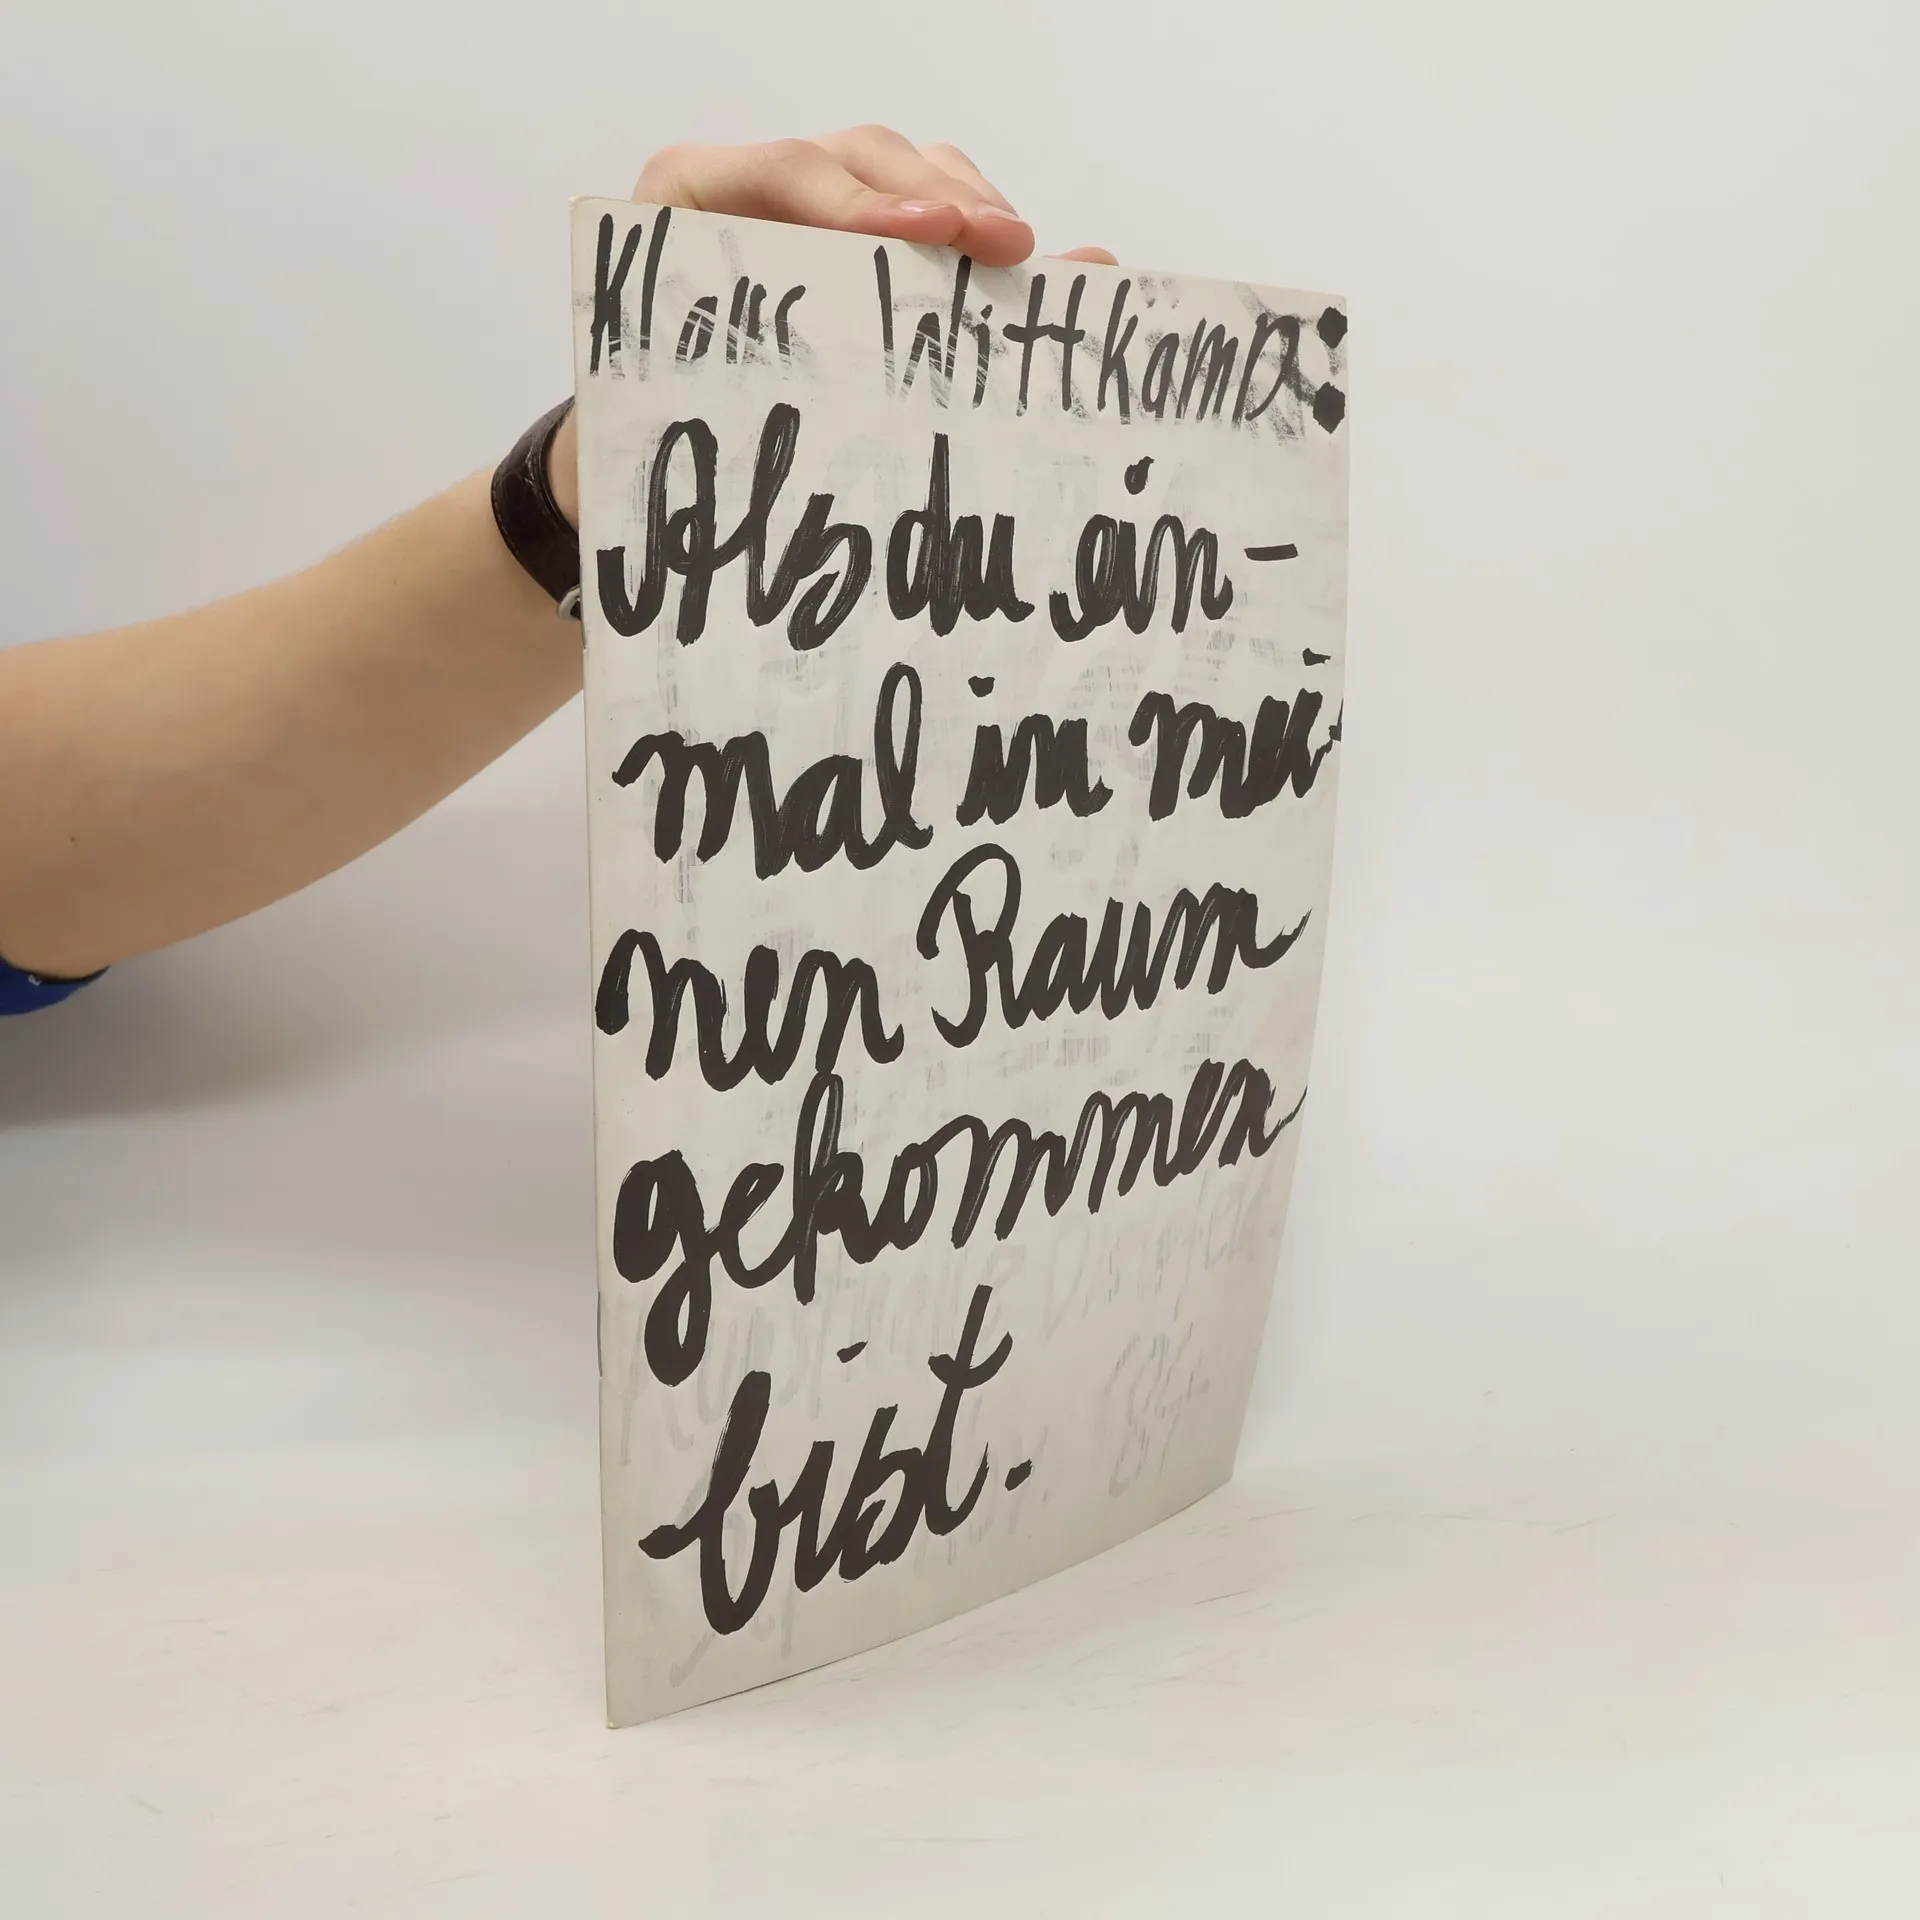 Klaus Wittkamp:
Als du ein-
mal in mei-
nen Raum
gekommen
bist.